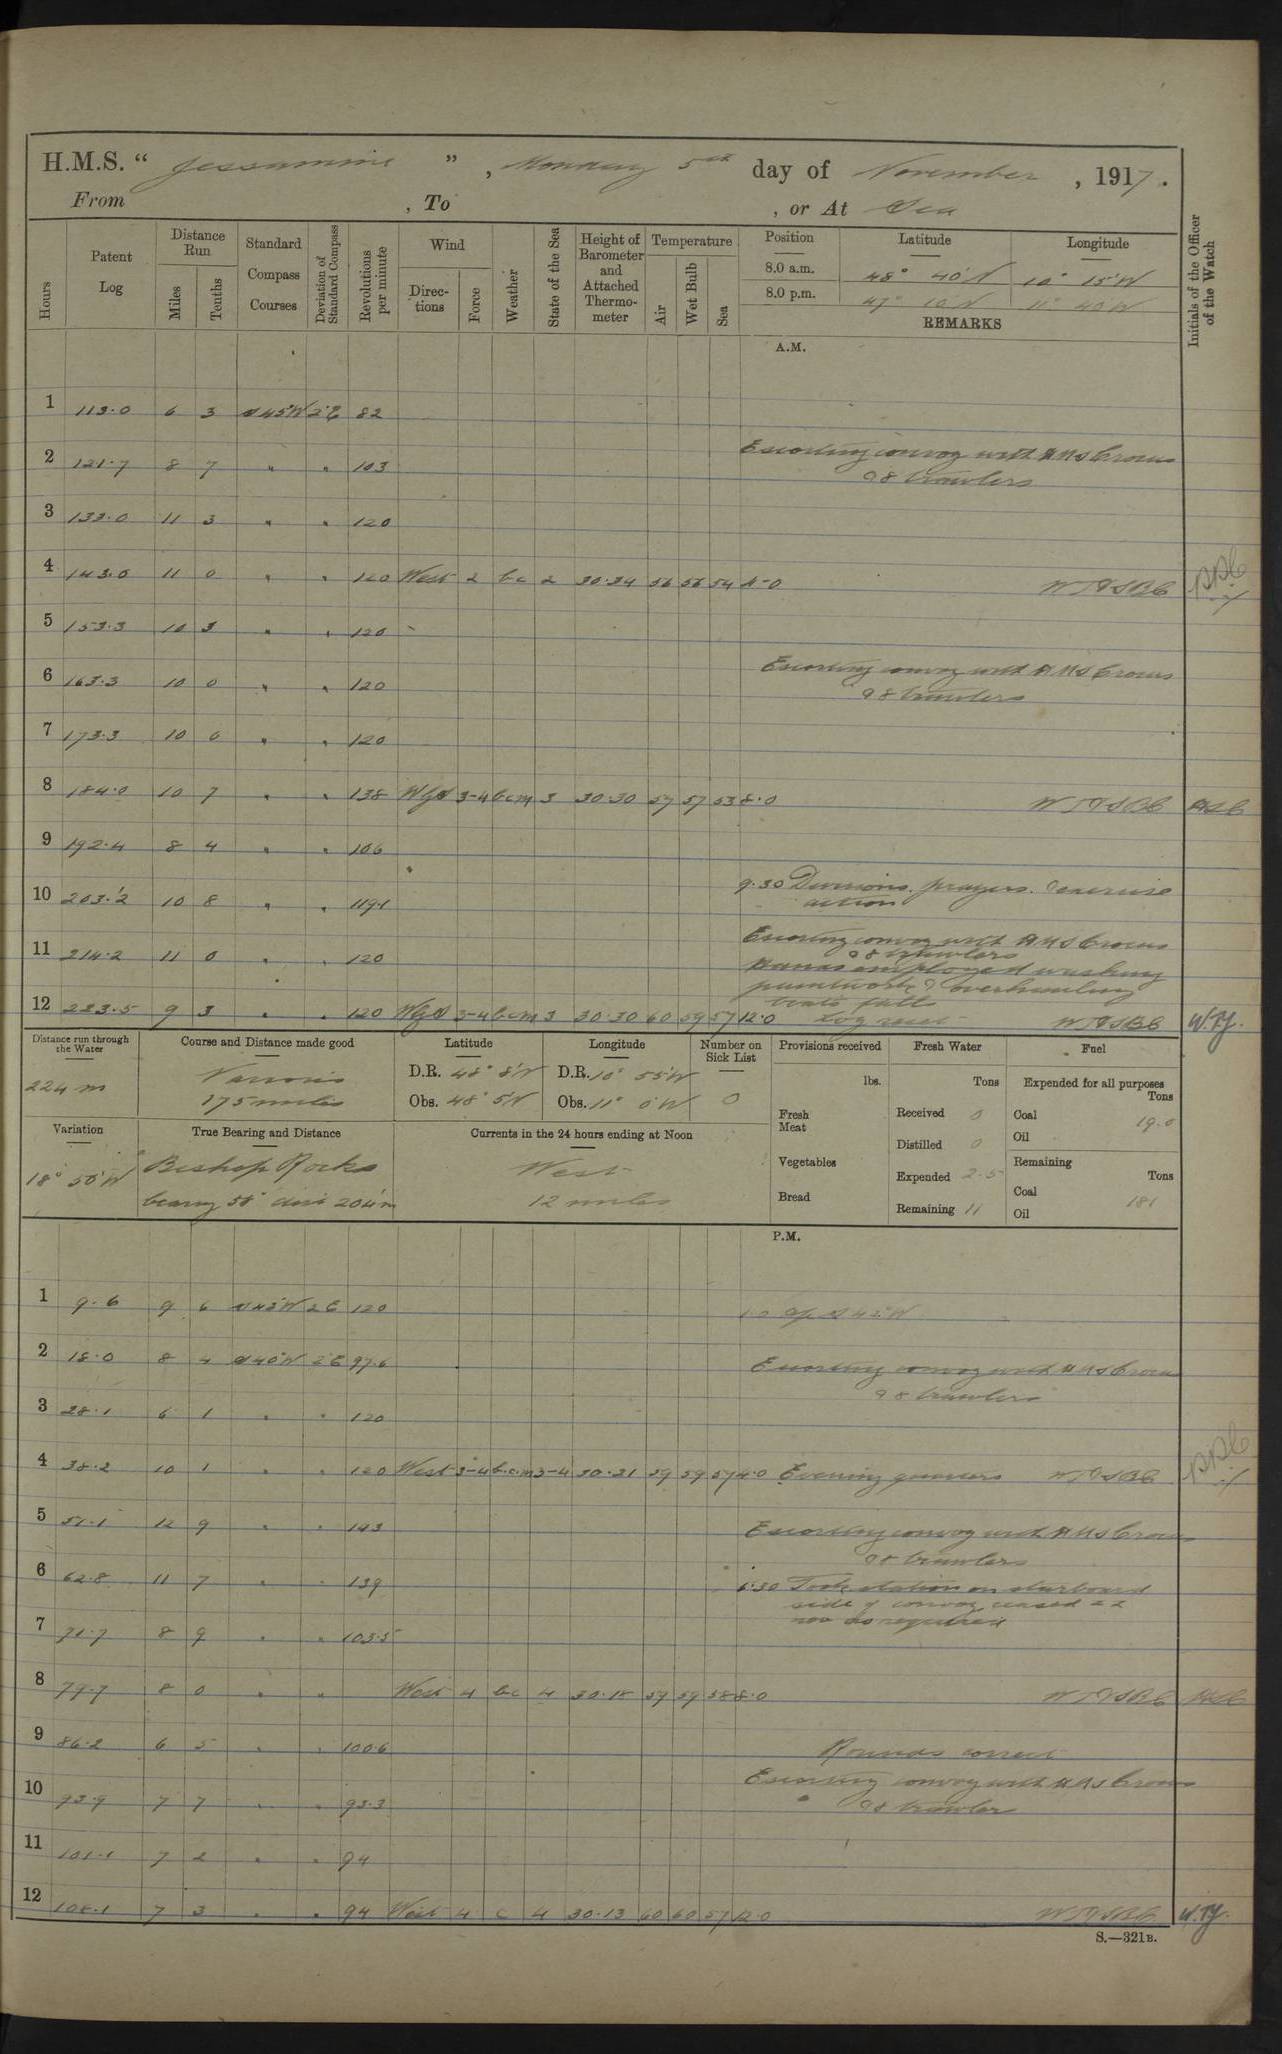 H.M.S. “ Jessamine ” , Monday 5th day of November , 1917 .
From , To , or At Sea
Hours
Patent Log
Distance Run
Miles
Tenths
Standard Compass Courses
Deviation of Standard Compass
Revolutions per minute
Wind
Directions
Force
Weather
State of the Sea
Height of Barometer and Attached Thermometer
Temperature
Air
Wet Bulb
Sea
Position Latitude Longitude
8.0 a.m. 48° 40'N 10° 15'W
8.0 p.m. 47° 10'N 11° 40'W
REMARKS
Initials of the Officer of the Watch
A.M.
1 113.0 6 3 S45°W 2°E 82
Escorting convoy with HMS Crocus
2 121.7 8 7 " " 103
& 8 trawlers
3 133.0 11 3 " " 120
4 143.0 11 0 " " 120 West 2 bc 2 30.34 56 56 54 4.0 WT&SBC
5 153.3 10 3 " " 120
Escorting convoy with HMS Crocus
6 163.3 10 0 " " 120
& 8 trawlers
7 173.3 10 0 " " 120
8 184.0 10 7 " " 138 WbyS 3-4 bcm 3 30.30 57 57 53 8.0 WT&SBC
9 192.4 8 4 " " 106
9.30 Divisions. prayers. & exercise
10 203.2 10 8 " " 119.1
action
Escorting convoy with HMS Crocus
11 214.2 11 0 " " 120
& 8 trawlers
Hands employed washing
paintwork & overhauling
boats falls
12 223.5 9 3 " " 120 WbyS 3-4 bcm 3 30.30 60 59 57 12.0 Log reset WT&SBC W.T.J.
Distance run through the Water
224 m
Course and Distance made good
Various
175 miles
Latitude
D.R. 48° 8'N
Obs. 48° 5'N
Longitude
D.R. 10° 55'W
Obs. 11° 0'W
Number on Sick List
0
Provisions received
lbs.
Fresh Meat
Vegetables
Bread
Fresh Water
Tons
Received 0
Distilled 0
Expended 2.5
Remaining 11
Fuel
Expended for all purposes
Tons
Coal 19.0
Oil
Remaining
Tons
Coal 181
Oil
Variation
18° 50'W
True Bearing and Distance
Bishop Rocks
bearing 58° dist 204 m
Currents in the 24 hours ending at Noon
West
12 miles
P.M.
1 9.6 9 6 S43°W 2E 120 1.0 S 42°W
2 18.0 8 4 S40°W 2°E 97.6
Escorting convoy with HMS Crocus
& 8 trawlers
3 28.1 6 1 " " 120
4 38.2 10 1 " " 120 West 3-4 b.c.m 3-4 30.21 59 59 57 4.0 Evening quarters WT&SBC
5 51.1 12 9 " " 143
Escorting convoy with HMS Crocus
& 8 trawlers
6 62.8 11 7 " " 139
6.30 Took station on starboard
side of convoy
rev as required
7 71.7 8 9 " " 103.5
8 79.7 8 0 " " West 4 bc 4 30.18 59 59 58 8.0 WT&SBC
9 86.2 6 5 " " 100.6
Rounds correct
Escorting convoy with HMS Crocus
10 93.9 7 7 " " 93.3
& 8 trawler
11 101.1 7 2 " " 94
12 108.1 7 3 " " 94 West 4 c 4 30.13 60 60 57 12.0 WT&SBC W.T.J.
S.—321B.